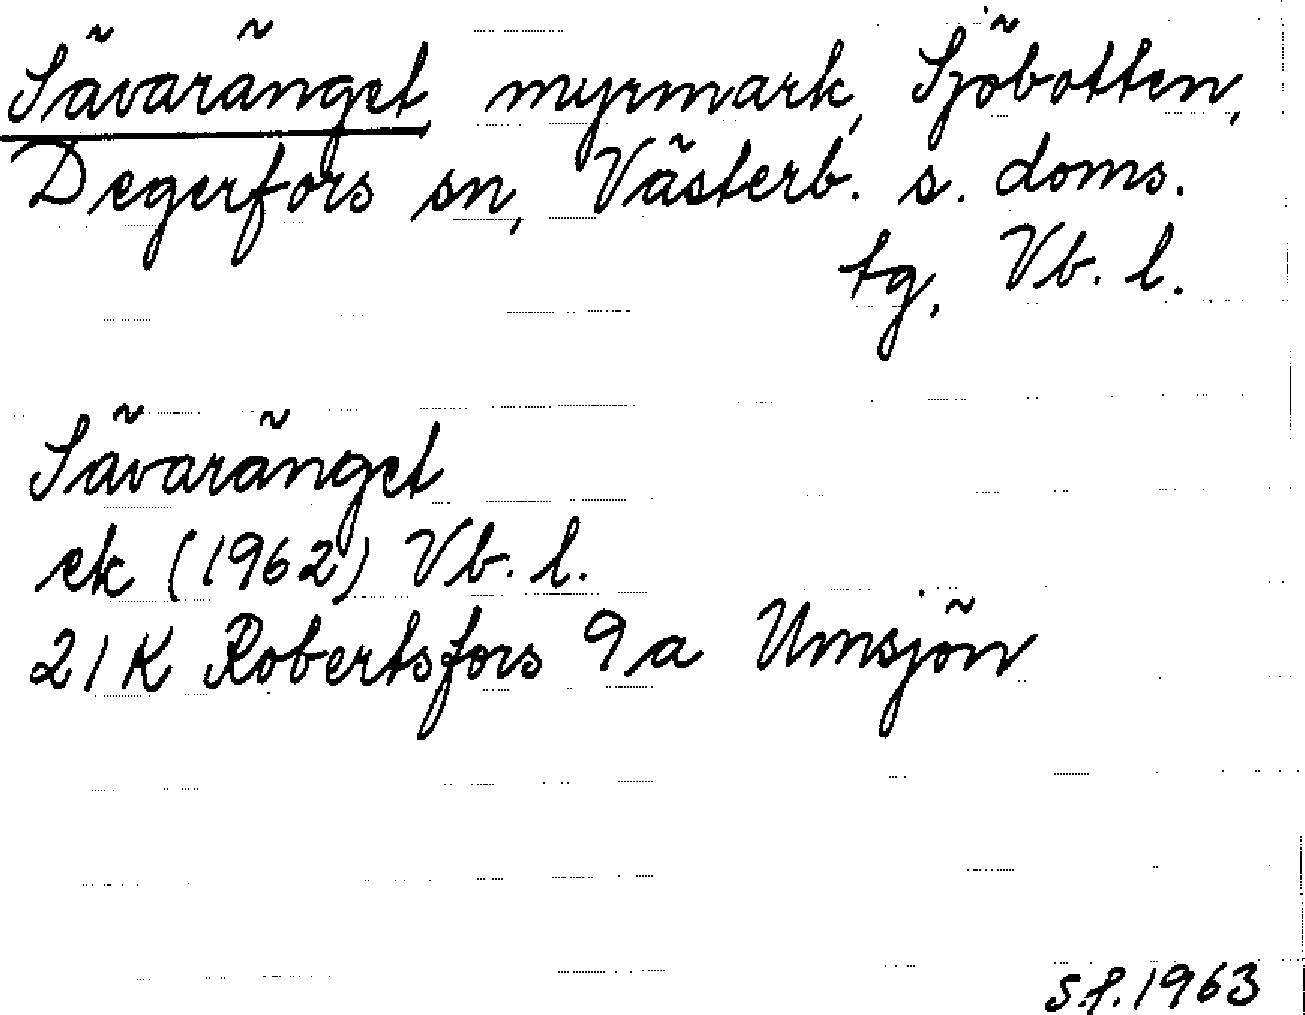 Sävaränget, myrmark, Sjöbotten,
Degerfors sn, Västerb. s. doms.
tg, Vb. l.
Sävaränget
ek (1962) Vb. l.
21K Robertsfors 9a Umsjön
S.f. 1963